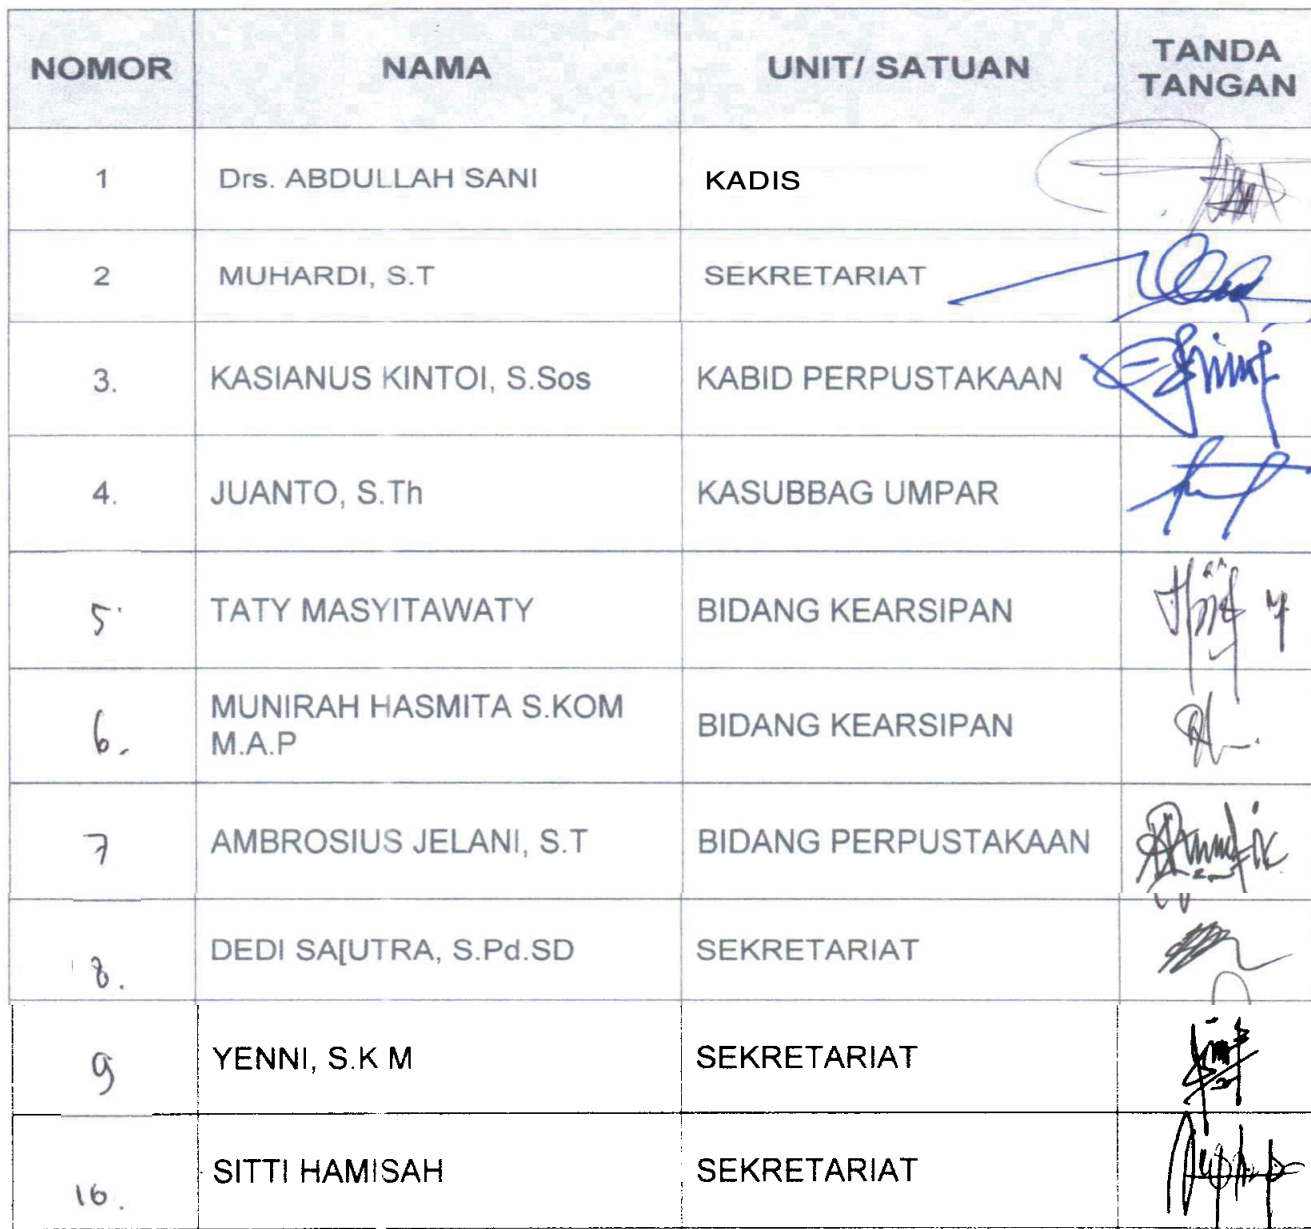 NOMOR NAMA UNIT/ SATUAN TANDA
TANGAN
1 Drs. ABDULLAH SANI KADIS
2 MUHARDI, S.T SEKRETARIAT
3. KASIANUS KINTOI, S.Sos KABID PERPUSTAKAAN
4. JUANTO, S.Th KASUBBAG UMPAR
5. TATY MASYITAWATY BIDANG KEARSIPAN
6. MUNIRAH HASMITA S.KOM BIDANG KEARSIPAN
M.A.P
7 AMBROSIUS JELANI, S.T BIDANG PERPUSTAKAAN
8. DEDI SA[UTRA, S.Pd.SD SEKRETARIAT
9 YENNI, S.K M SEKRETARIAT
10. SITTI HAMISAH SEKRETARIAT